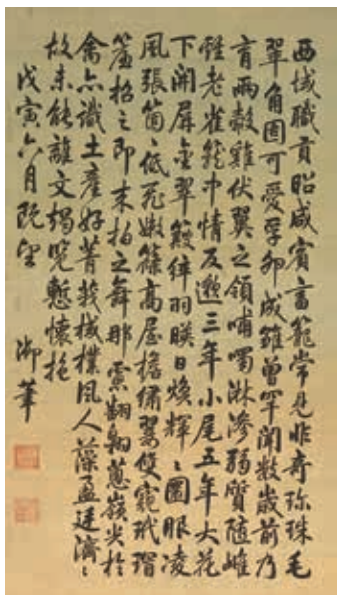 西域職貢昭咸賓畜籠常見非奇珍珠毛
翠角固可愛孚卵成雛曾罕聞數歲前乃
育兩鷇雞伏翼之領哺噣淋滲弱質隨雌
雄老雀籠中情反邈三年小尾五年大花
下開屏金翠簸綷羽映日煥輝〻圓眼凌
風張箇〻低飛嫩篠高屋檐繡翼雙窺玳瑁
簾招之即來拍之舞那慮翾翔蔥嶺尖於
禽亦識土產好菁莪棫樸風人藻盈廷濟〻
故未能離文觸覽慙懷抱
戊寅六月既望 御筆